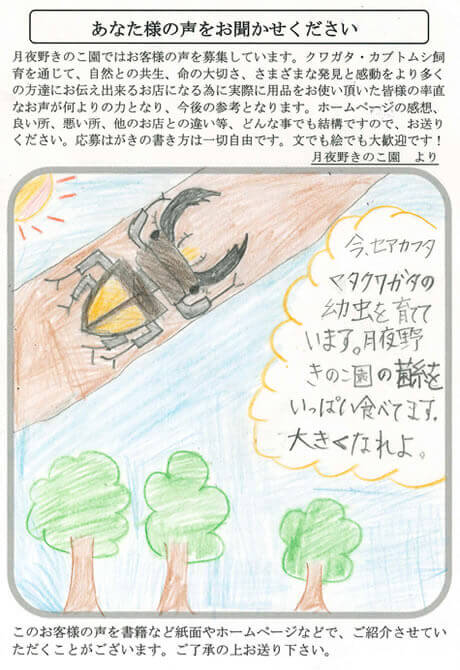 あなた様の声をお聞かせください
月夜野きのこ園ではお客様の声を募集しています。クワガタ・カブトムシ飼
育を通じて、自然との共生、命の大切さ、さまざまな発見と感動をより多く
の方達にお伝え出来るお店になる為に実際に用品をお使い頂いた皆様の率直
なお声が何よりの力となり、今後の参考となります。ホームページの感想、
良い所、悪い所、他のお店との違い等、どんな事でも結構ですので、お送り
ください。応募はがきの書き方は一切自由です。文でも絵でも大歓迎です！
月夜野きのこ園　より
今、セアカフタ
マタクワガタの
幼虫を育てて
います。月夜野
きのこ園の菌糸を
いっぱい食べてます。
大きくなれよ。
このお客様の声を書籍など紙面やホームページなどで、ご紹介させてい
ただくことがございます。ご了承の上お送り下さい。